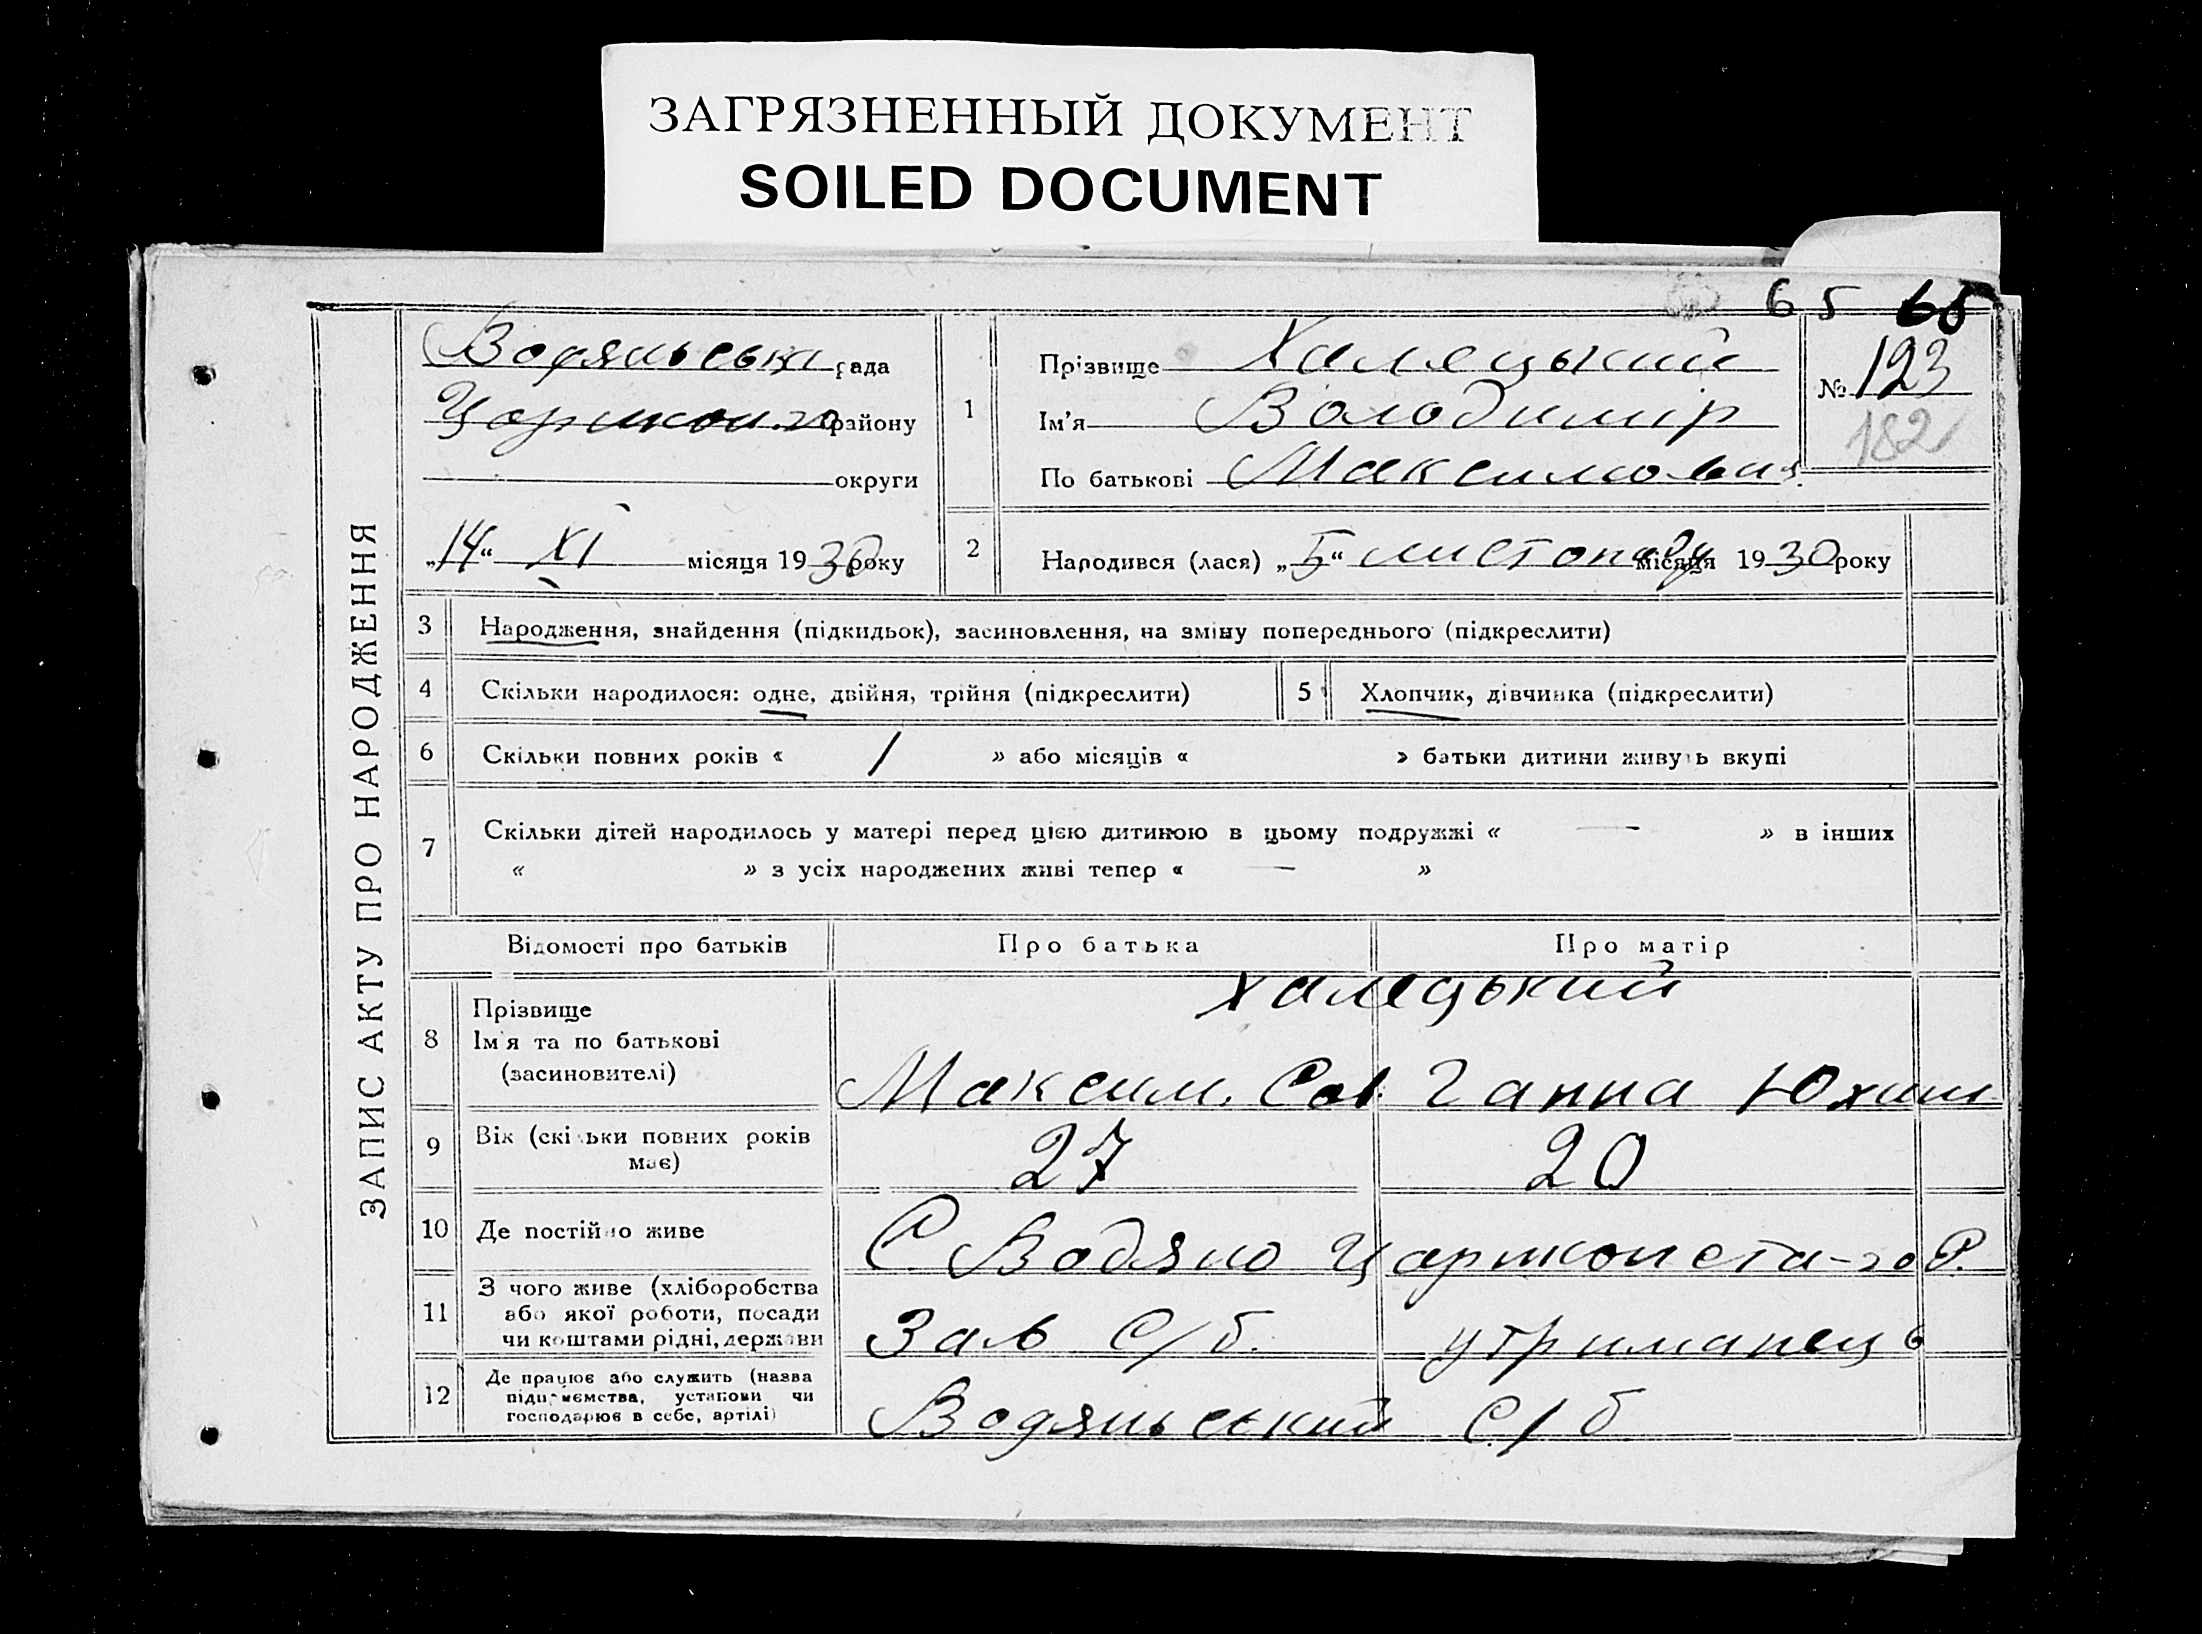 ЗАГРЯЗНЕННЫЙ ДОКУМЕНТ
SOILED DOCUMENT
65 65
ЗАПИС АКТУ ПРО НАРОДЖЕННЯ
Водянська рада
району
округи
„14“ XI місяця 1930 року
1
Прізвище Халецький
Ім'я Володимір
По батькові Максимович
№ 123
182
2
Народився (лася) „5“ листопаду місяця 1930 року
3 Народження, знайдення (підкидьок), засиновлення, на зміну попереднього (підкреслити)
4 Скільки народилося: одне, двійня, трійня (підкреслити)
5 Хлопчик, дівчинка (підкреслити)
6 Скільки повних років « / » або місяців « » батьки дитини живуть вкупі
7 Скільки дітей народилось у матері перед цією дитиною в цьому подружжі « — » в інших
« » з усіх народжених живі тепер « — »
Відомості про батьків Про батька Про матір
Халецький
8 Прізвище
Ім'я та по батькові
(засиновителі)
Максим. Сав. Ганна Юхим
9 Вік (скільки повних років
має)
27 20
10 Де постійно живе
С Водяно р.
11 З чого живе (хліборобства
або якої роботи, посади
чи коштами рідні, держави
Зав С/б. утриманець
12 Де працює або служить (назва
підприємства, установи чи
господарює в себе, артілі)
Водянський С/б